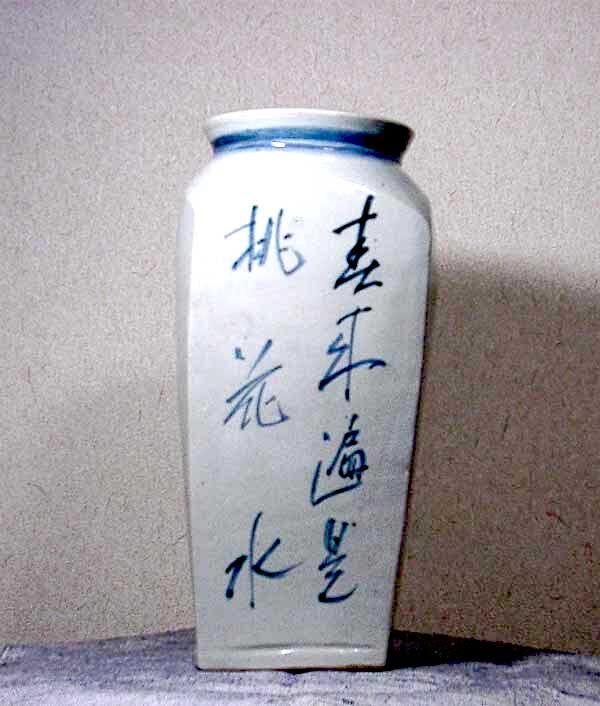 春来遍是
桃花水